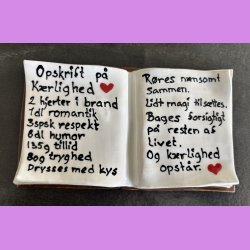 Opskrift på
Kærlighed
2 hjerter i brand
1dl romantik
3spsk respekt
8dl humor
135g tillid
80g tryghed
Drysses med kys
Røres nænsomt
Sammen.
Lidt magi tilsættes.
Bages forsigtigt
på resten af
livet.
Og kærlighed
opstår.